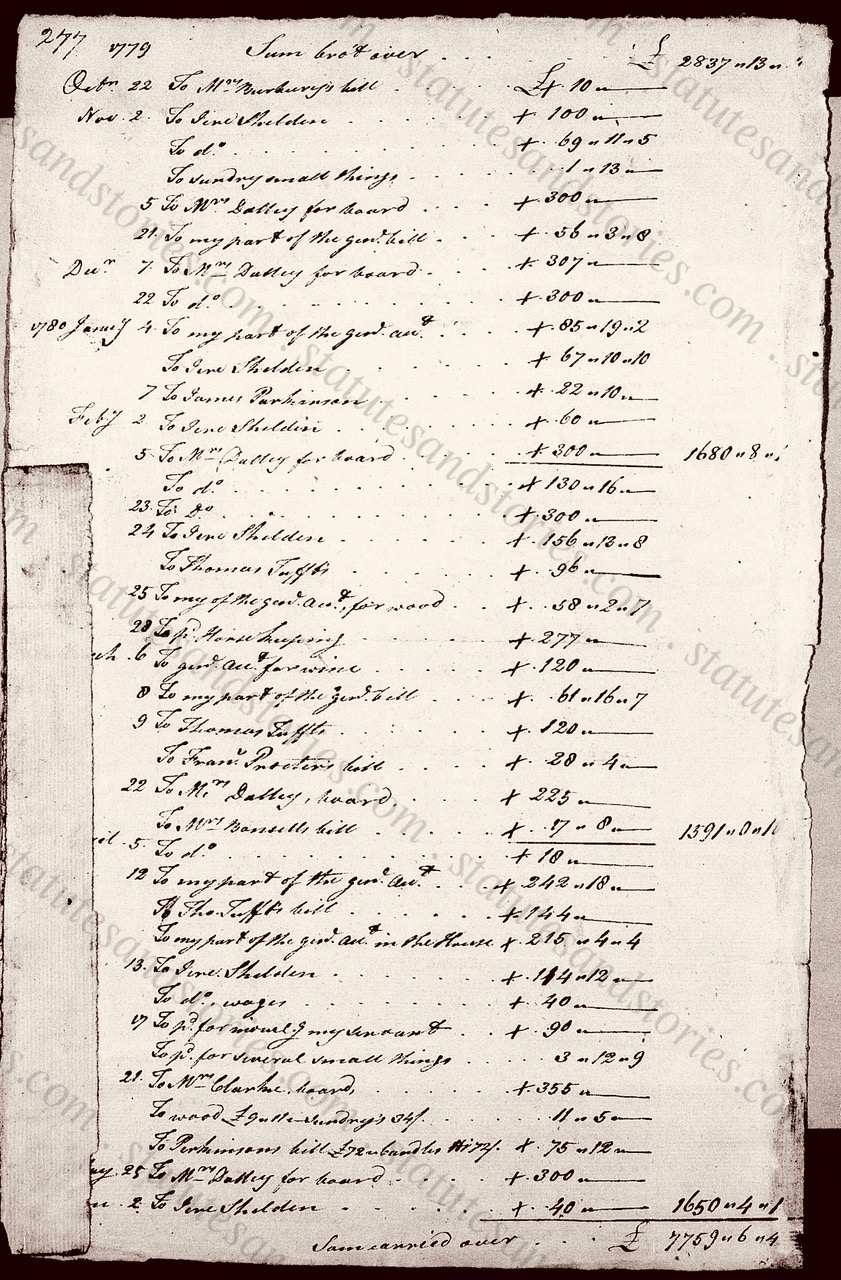 277 1779 Sum bro't over . . . £ 2837 " 13 " "
Octbr 22 To Mrs Burbury's bill . . . £+ 10 "
Nov. 2. To Jere Shelden . . . + 100 "
To do . . . + 69 " 11 " 5
To sundry small things . . . 1 " 13 "
5 To Mrs Dalley for board . . . + 300 "
21. To my part of the genl. bill . . . + 56 " 3 " 8
Decr 7. To Mrs Dalley for board . . . + 307 "
22 To do . . . + 300 "
1780 Janry 4. To my part of the genl. acct. . . . + 85 " 19 " 2
To Jere Shelden . . . + 67 " 10 " 10
7 To James Parkinson . . . + 22 " 10 "
Feby 2 To Jere Shelden . . . + 60 "
5 To Mrs Dalley for board . . . + 300 " 1680 " 8 " 1
To do . . . + 130 " 16 "
23. To Do . . . + 300 "
24 To Jere Shelden . . . + 156 " 13 " 8
To Thomas Tuffts . . . + 96 "
25 To my of the genl. acct., for wood . . . + 58 " 2 " 7
28 To pd. Horse keeping . . . + 277 "
ch. 6 To genl. acct for wine . . . + 120 "
8 To my part of the genl. bill . . . + 61 " 16 " 7
9 To Thomas Tuffts . . . + 120 "
To Frans. Procter's bill . . . + 28 " 4 "
22 To Mrs Dalley, board . . . + 225 "
To Mrs Bonsells bill . . . + 17 " 8 " 1591 " 0 " 10
il. 5. To do . . . + 18 "
12 To my part of the genl. acct. . . . + 242 " 18 "
To Tho. Tuffts bill . . . + 144 "
To my part of the genl. acct. in the House + 215 " 4 " 4
13. To Jere. Shelden . . . + 114 " 12 "
To do, wages . . . + 40 "
17 To pd. for my servant . . . + 90 "
To pd. for several small things . . . 3 " 12 " 9
21. To Mrs Clarke, board, + 355 "
To wood £9 " 11 " sundry's 34/. 11 " 5 "
To Perkinsons bill £72 " candles 72/. + 75 " 12 "
ay 25 To Mrs Dalley for board . . . + 300 "
n. 2. To Jere Shelden . . . + 40 " 1650 " 4 " 1
Sum carried over . . . £ 7759 " 6 " 4
statutesandstories.com